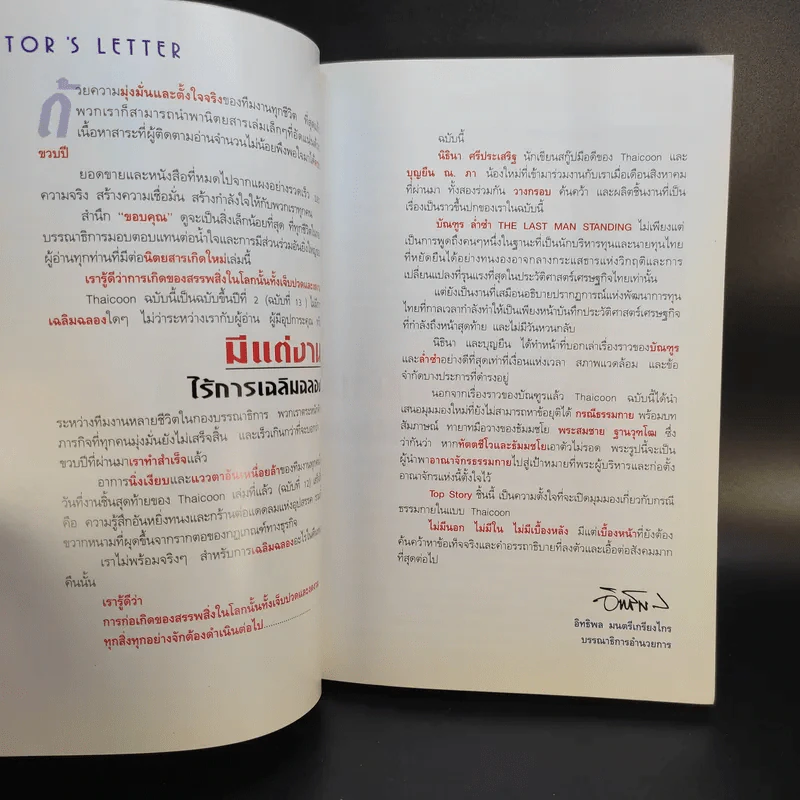 TOR'S LETTER
ด้วยความมุ่งมั่นและตั้งใจจริงของทีมงานทุกชีวิต
พวกเราก็สามารถนำพานิตยสารเล่มเล็กๆที่อัดแน่นด้วย
เนื้อหาสาระที่ผู้ติดตามอ่านจำนวนไม่น้อยพึงพอใจมาได้
ขวบปี
ยอดขายและหนังสือที่หมดไปจากแผงอย่างรวดเร็ว
ความจริง สร้างความเชื่อมั่น สร้างกำลังใจให้กับพวกเราทุกคน
สำนึก "ขอบคุณ" ดูจะเป็นสิ่งเล็กน้อยที่สุด ที่ทุกชีวิตใน
บรรณาธิการมอบตอบแทนต่อน้ำใจและการมีส่วนร่วมอันยิ่งใหญ่
ผู้อ่านทุกท่านที่มีต่อนิตยสารเกิดใหม่เล่มนี้
เรารู้ดีว่าการเกิดของสรรพสิ่งในโลกนั้นทั้งเจ็บปวดและงดงาม
Thaicoon ฉบับนี้เป็นฉบับขึ้นปีที่ 2 (ฉบับที่ 13 ) ไม่มีการ
เฉลิมฉลองใดๆ ไม่ว่าระหว่างเรากับผู้อ่าน ผู้มีอุปการะคุณ
มีแต่งาน
ไร้การเฉลิมฉลอง
ระหว่างทีมงานหลายชีวิตในกองบรรณาธิการ พวกเราตระหนัก
ภารกิจที่ทุกคนมุ่งมั่นยังไม่เสร็จสิ้น และเร็วเกินกว่าที่จะบอก
ขวบปีที่ผ่านมาเราทำสำเร็จแล้ว
อาการนิ่งเงียบและแววตาอันเหนื่อยล้าของทีมงานทุกคน
วันที่งานชิ้นสุดท้ายของ Thaicoon เล่มที่แล้ว (ฉบับที่ 12)
คือ ความรู้สึกอันหยิ่งทนงและกร้านต่อแดดลมแห่งอุปสรรค
ขวากหนามที่ผุดขึ้นจากรากตอของกฎเกณฑ์ทางธุรกิจ
เราไม่พร้อมจริงๆ สำหรับการเฉลิมฉลองอะไรในค่ำ
คืนนั้น
เรารู้ดีว่า
การก่อเกิดของสรรพสิ่งในโลกนั้นทั้งเจ็บปวดและงดงาม
ทุกสิ่งทุกอย่างจักต้องดำเนินต่อไป...............
ฉบับนี้
นิธินา ศรีประเสริฐ นักเขียนสกู๊ปมือดีของ Thaicoon และ
บุญยืน ณ. ภา น้องใหม่ที่เข้ามาร่วมงานกับเราเมื่อเดือนสิงหาคม
ที่ผ่านมา ทั้งสองร่วมกัน วางกรอบ ค้นคว้า และผลิตชิ้นงานที่เป็น
เรื่องเป็นราวขึ้นปกของเราในฉบับนี้
บัณฑูร ล่ำซำ THE LAST MAN STANDING ไม่เพียงแต่
เป็นการพูดถึงคนๆหนึ่งในฐานะที่เป็นนักบริหารทุนและนายทุนไทย
ที่หยัดยืนได้อย่างทนงองอาจกลางกระแสธารแห่งวิกฤติและการ
เปลี่ยนแปลงที่รุนแรงที่สุดในประวัติศาสตร์เศรษฐกิจไทยเท่านั้น
แต่ยังเป็นงานที่เสมือนอธิบายปรากฏการณ์แห่งพัฒนาการทุน
ไทยที่กาลเวลากำลังทำให้เป็นเพียงหน้าบันทึกประวัติศาสตร์เศรษฐกิจ
ที่กำลังถึงหน้าสุดท้าย และไม่มีวันหวนกลับ
นิธินา และบุญยืน ได้ทำหน้าที่บอกเล่าเรื่องราวของบัณฑูร
และล่ำซำอย่างดีที่สุดเท่าที่เงื่อนแห่งเวลา สภาพแวดล้อม และข้อ
จำกัดบางประการที่ดำรงอยู่
นอกจากเรื่องราวของบัณฑูรแล้ว Thaicoon ฉบับนี้ได้นำ
เสนอมุมมองใหม่ที่ยังไม่สามารถหาข้อยุติได้ กรณีธรรมกาย พร้อมบท
สัมภาษณ์ ทายาทมือวางของธัมมชโย พระสมชาย ฐานวุฑโฒ ซึ่ง
ว่ากันว่า หากทัตตชีโวและธัมมชโยเอาตัวไม่รอด พระรูปนี้จะเป็น
ผู้นำพาอาณาจักรธรรมกายไปสู่เป้าหมายที่พระผู้บริหารและก่อตั้ง
อาณาจักรแห่งนี้ตั้งใจไว้
Top Story ชิ้นนี้ เป็นความตั้งใจที่จะเปิดมุมมองเกี่ยวกับกรณี
ธรรมกายในแบบ Thaicoon
ไม่มีนอก ไม่มีใน ไม่มีเบื้องหลัง มีแต่เบื้องหน้าที่ยังต้อง
ค้นคว้าหาข้อเท็จจริงและคำอรรถาธิบายที่ลงตัวและเอื้อต่อสังคมมาก
ที่สุดต่อไป
อิทธิพล มนตรีเกรียงไกร
บรรณาธิการอำนวยการ